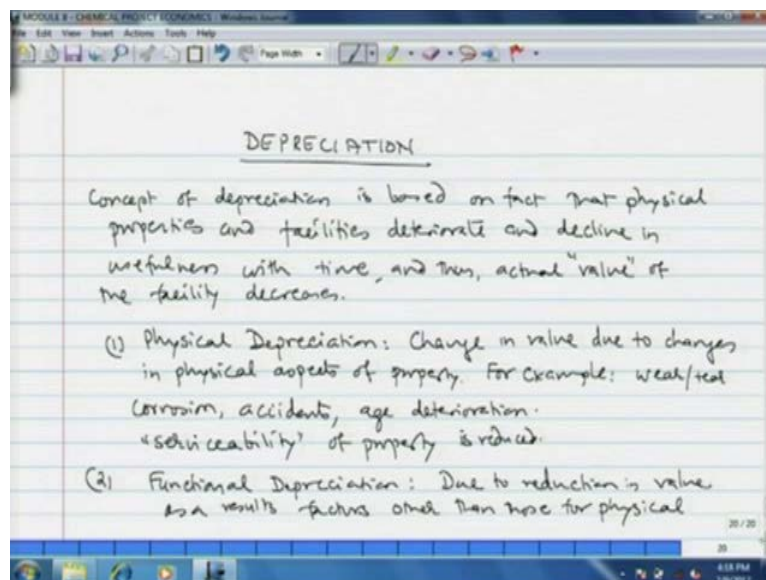 MODULE 8 - CHEMICAL PROJECT ECONOMICS - Windows Journal
File Edit View Insert Actions Tools Help
Page Width
DEPRECIATION
Concept of depreciation is based on fact that physical
properties and facilities deteriorate and decline in
usefulness with time, and thus, actual "value" of
the facility decreases.
(1) Physical Depreciation: Change in value due to changes
in physical aspects of property. For Example: wear/tear
Corrosion, accidents, age deterioration.
"serviceability" of property is reduced.
(2) Functional Depreciation: Due to reduction in value
as a results factors other than those for physical
20/20
20
4:18 PM